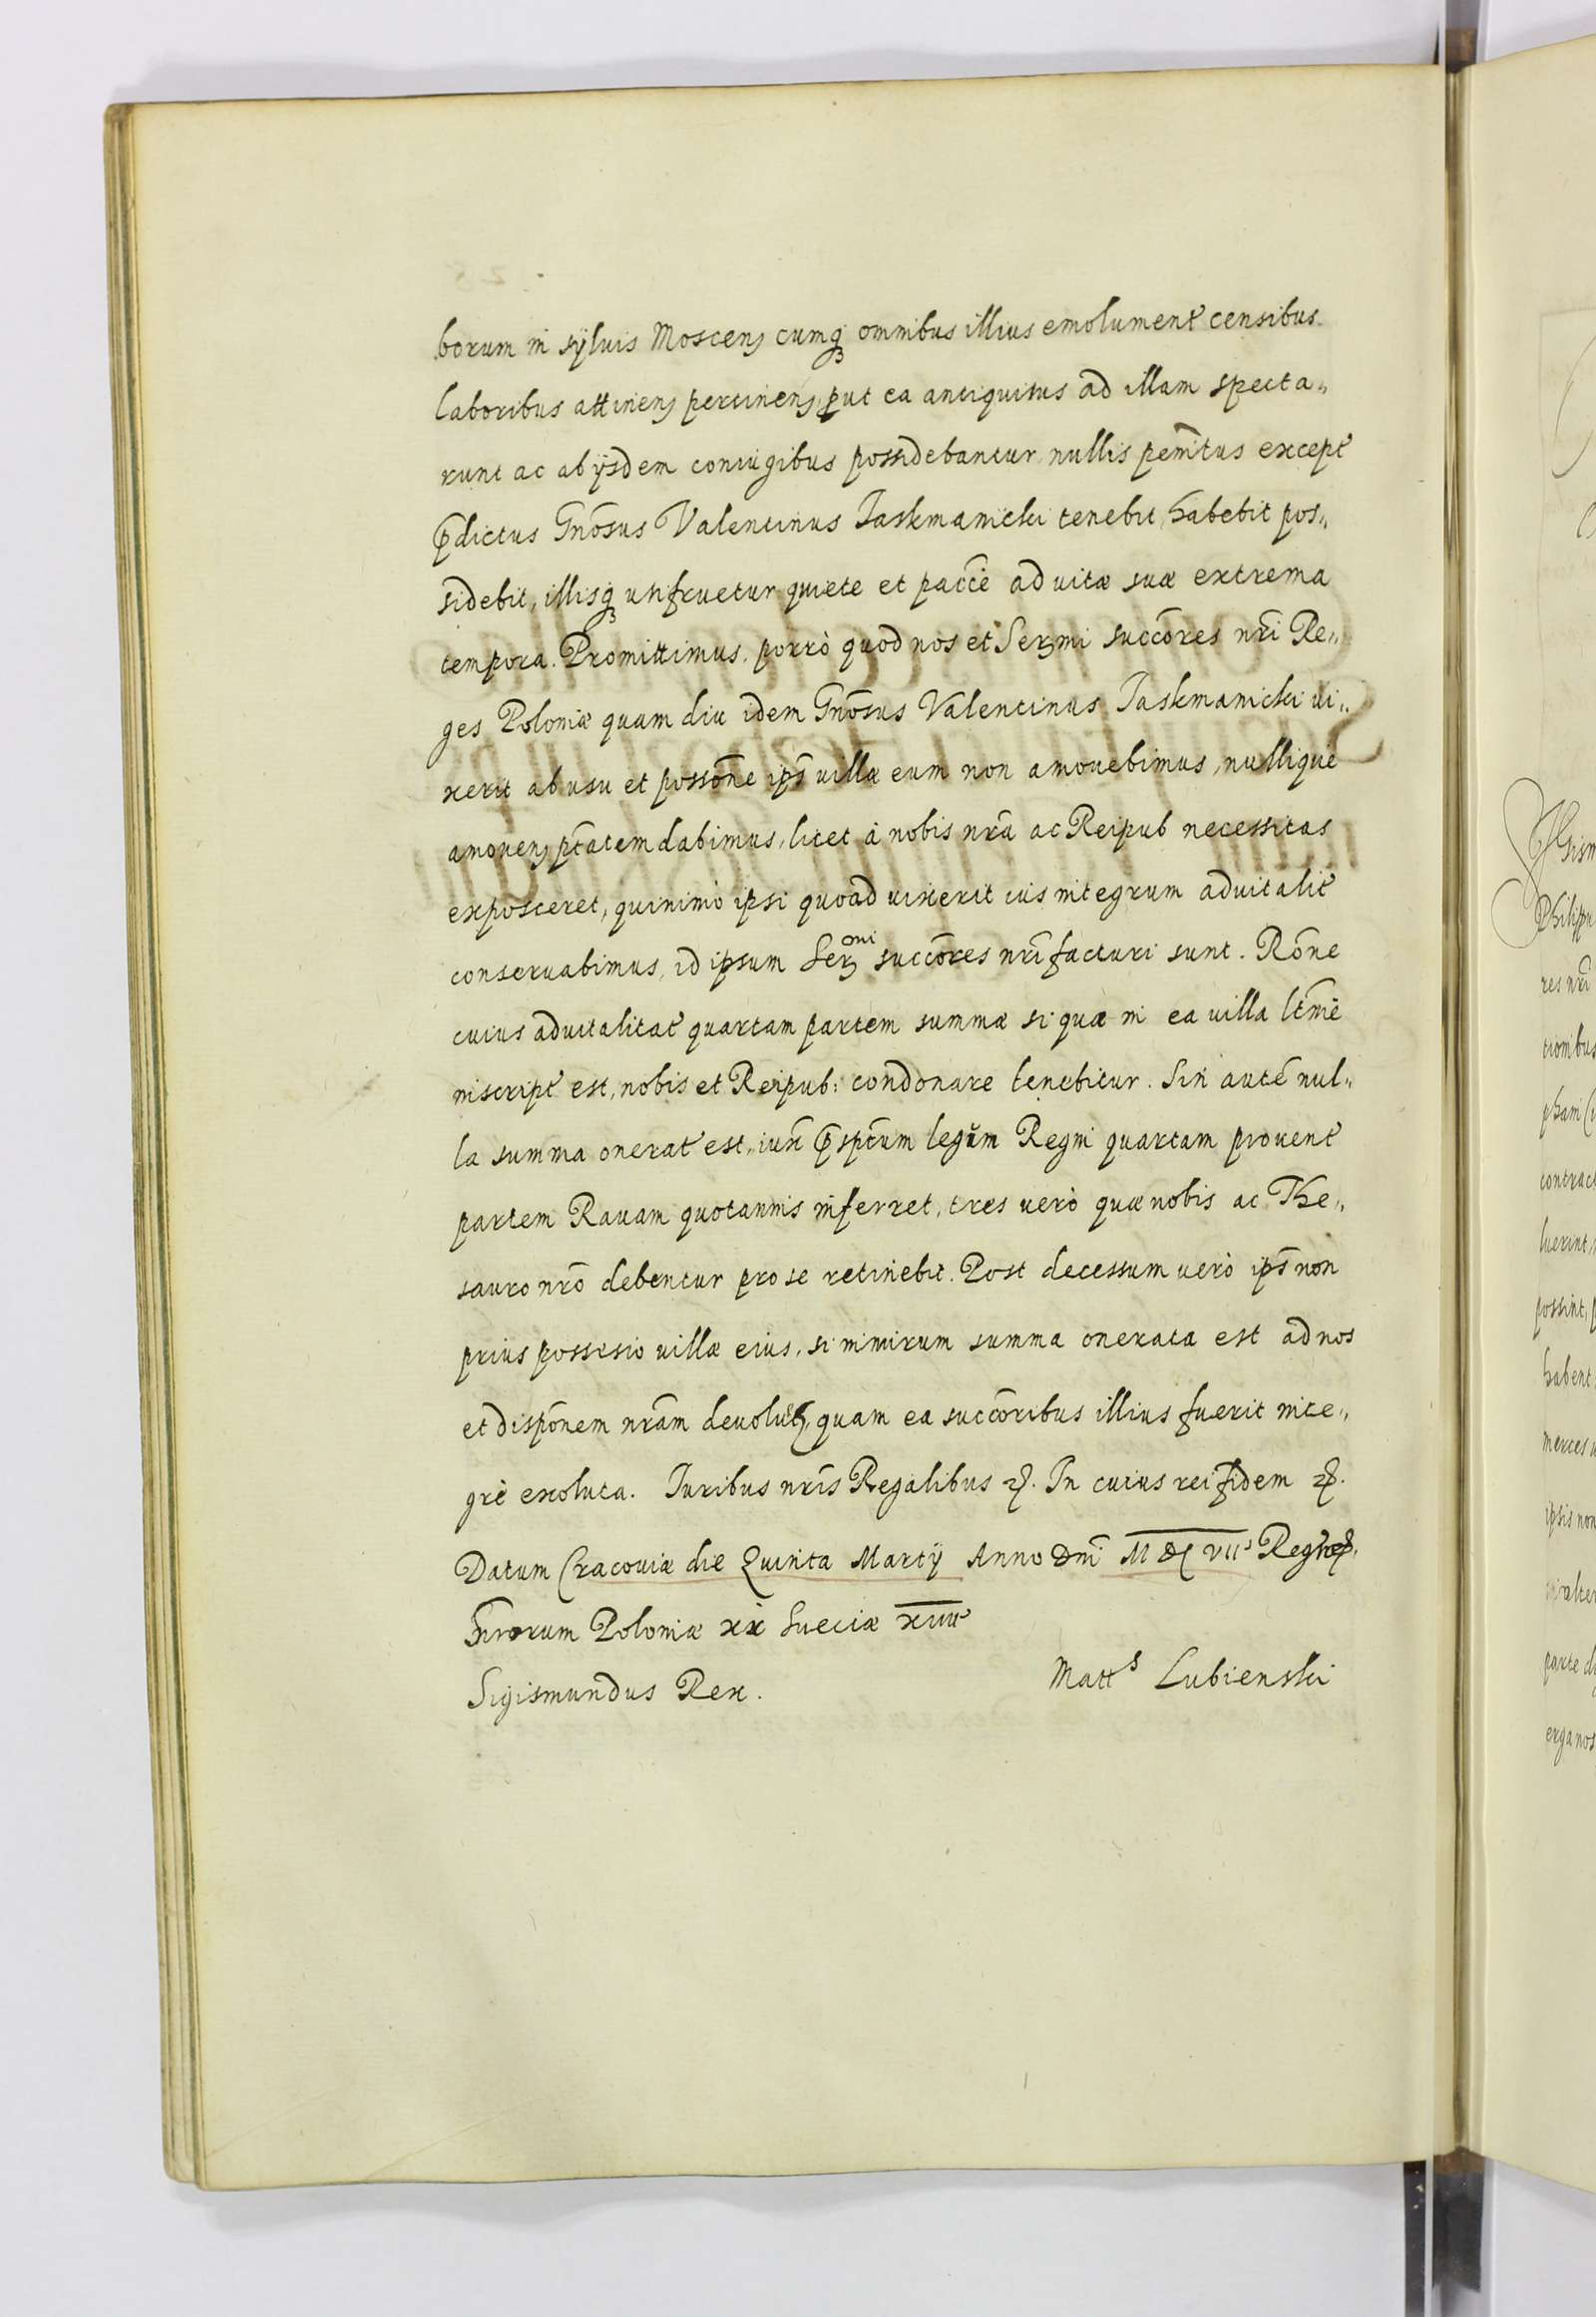 borum in sÿluis Moscenʒ cumqʒ omnibus illius emolument censibus
laboribus attinenʒ pertinenʒ put ea antiquitus ad illam specta„
runt ac ab ijsdem coniugibus possidebantur nullis penitus except
p̄dictus Gnōsus Valentinus Jaskmanicki tenebit, habebit pos„
sidebit, illisqʒ utifruetur quiete et paccē ad uitæ suæ extrema
tempora. Promittimus porrò quod nos et Serʒmi succōres nr̄i Re„
ges Poloniæ quam diu idem Gnōsus Valentinus Jaskmanicki ui„
xerit ab usu et possōne ips̄ uillæ eum non amouebimus, nullique
amouenʒ ptātem dabimus, licet à nobis nrā ac Reipub necessitas
exposceret, quinimò ipsi quoad uixerit ius integrum aduitalit
conseruabimus, id ipsum Serʒ mi succōres nr̄i facturi sunt. Rōne
cuius aduitalitat quartam partem summæ si quæ in ea uilla ltm̄e
inscript est, nobis et Reipub: condonare tenebitur. Sin autē nul„
la summa onerat est, iux p̄sptum legum Regni quartam prouent
partem Rauam quotannis inferret, tres uerò quæ nobis ac The„
sauro nrō debentur pro se retinebit. Post decessum uerò ips̄ non
prius possesio uillæ eius, si nimirum summa onerata est ad nos
et dispōnem nrām deuoluetʒ, quam ea succōribus illius fuerit inte„
grè exoluta. Juribus nrīs Regalibus &. In cuius rei fidem &.
Datum Cracouiæ die Quinta Martij Anno Dnī M DC VII Regnoʒ
nrorum Poloniæ xx Sueciæ xiiii
Sigismundus Rex. Matts Lubienski